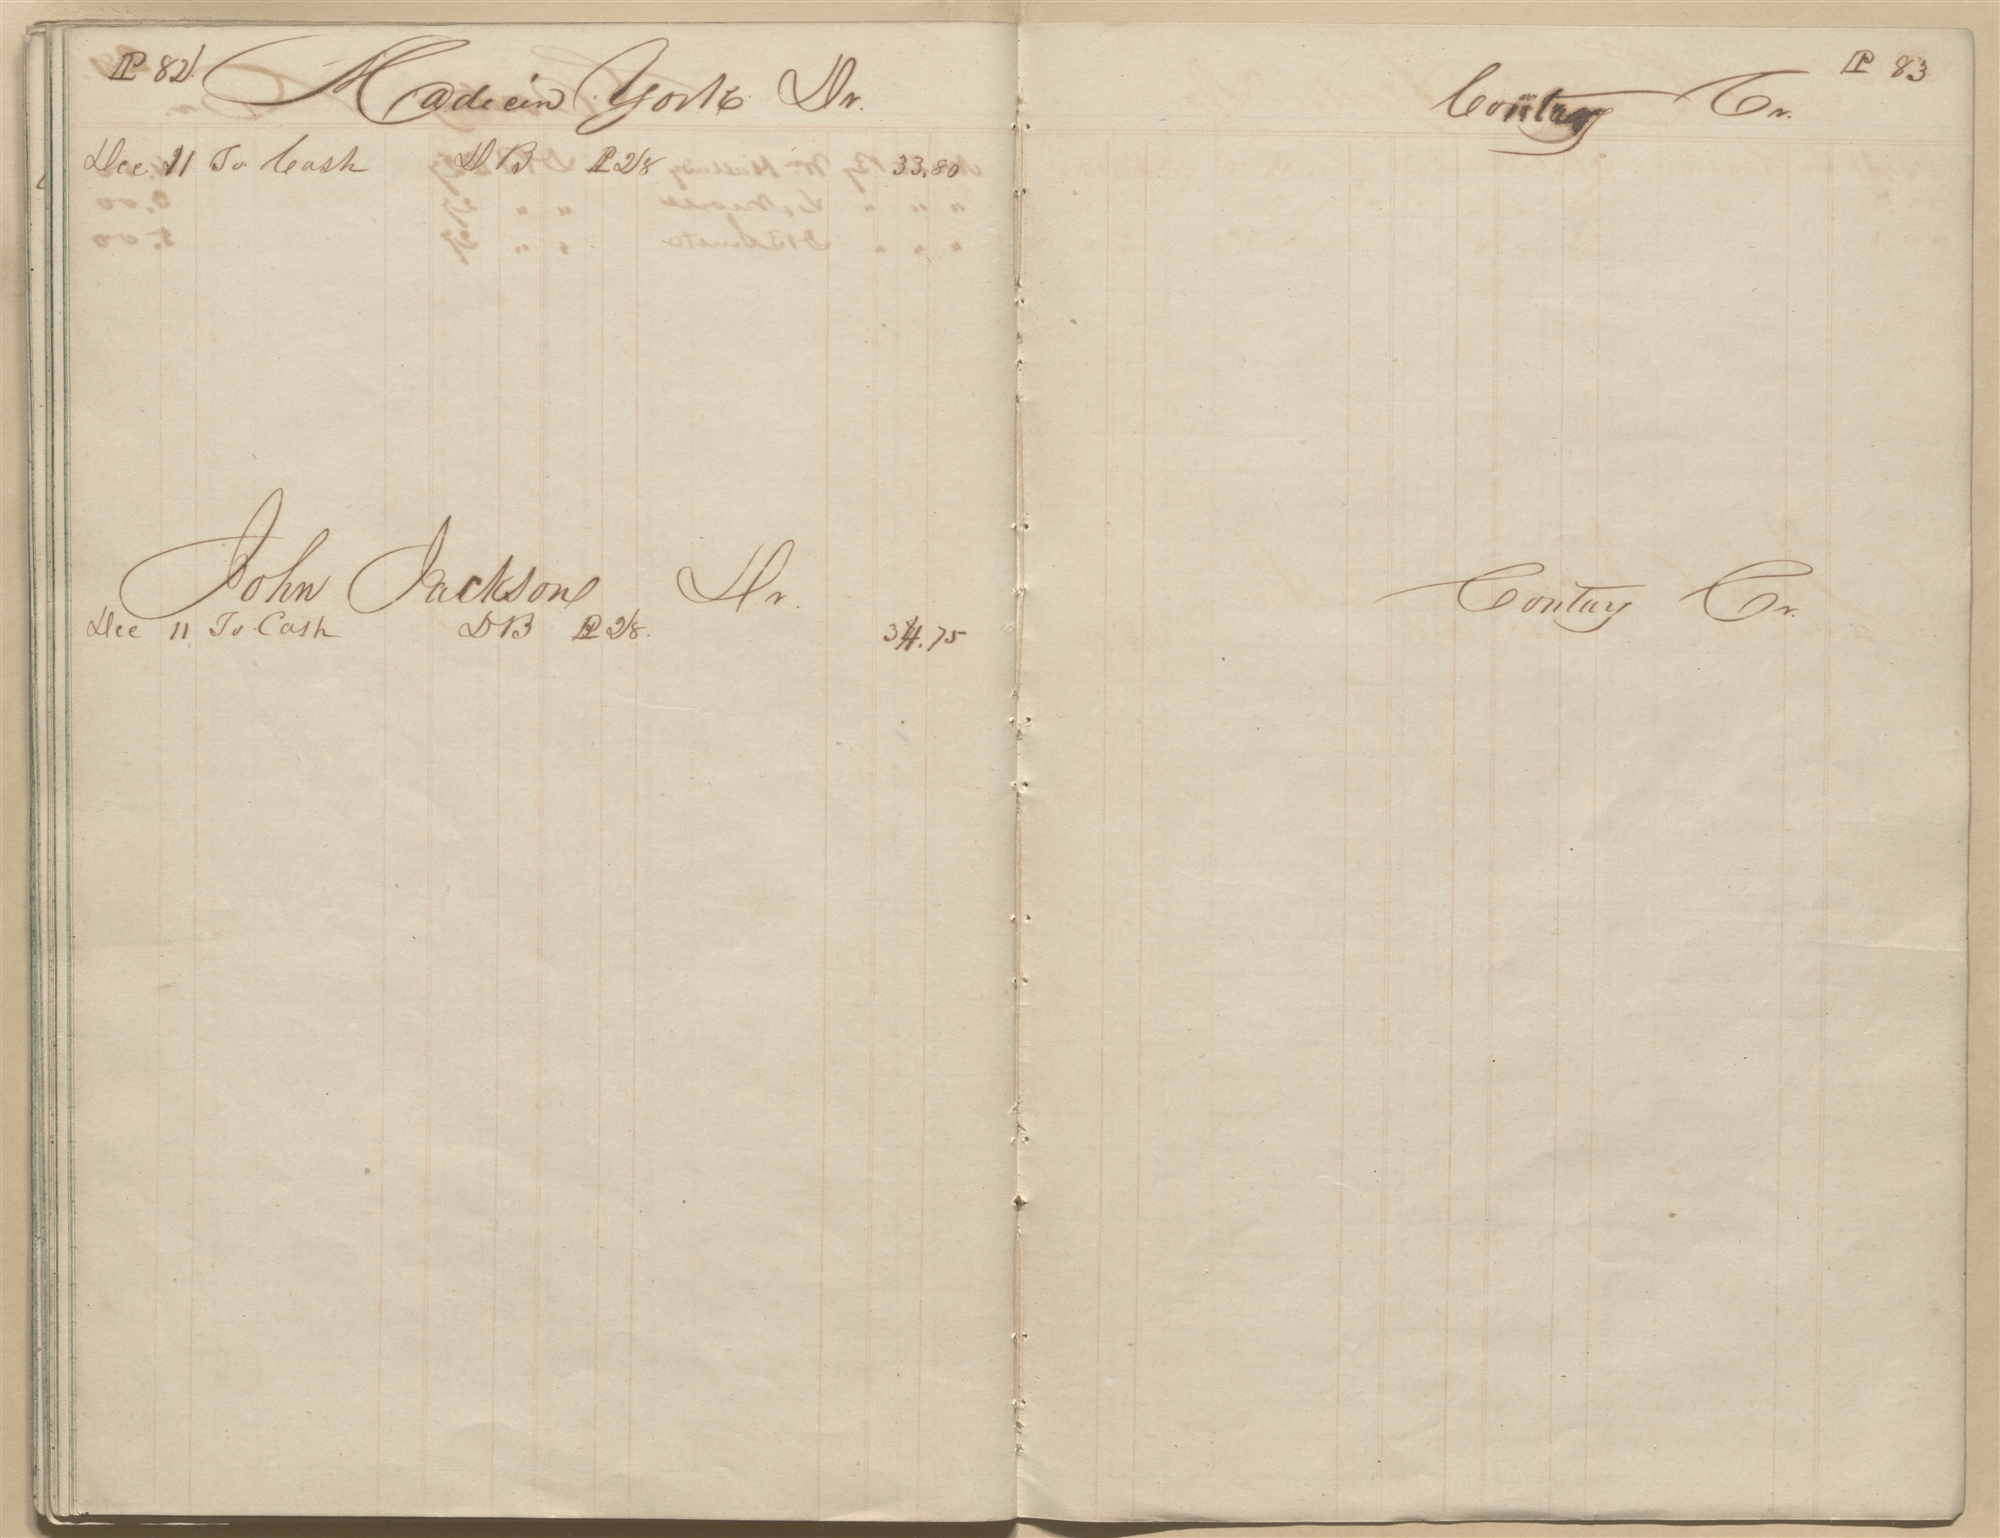 P 82
Madicin York Dr.
Dec 11 To Cash DB P 28 33.80
John Jackson Dr.
Dec 11 To Cash DB P 28. 34.75
P 83
Contuy Cr.
Contuy Cr.